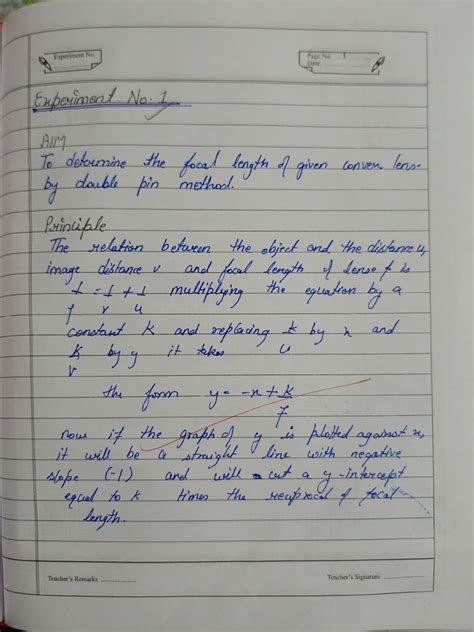 Experiment No.
Page No. 1
Date
Experiment No. 1
AIM
To determine the focal length of given convex lense
by double pin method.
Principle
The relation between the object and the distance u,
image distance v and focal length of lense f is
1/f = 1/v + 1/u multiplying the equation by a
constant K and replacing k/u by x and
k/v by y it takes
the form y = -x + k/f
now if the graph of y is plotted against x,
it will be a straight line with negative
slope (-1) and will cut a y-intercept
equal to k times the reciprocal of focal
length.
Teacher's Remarks
Teacher's Signature